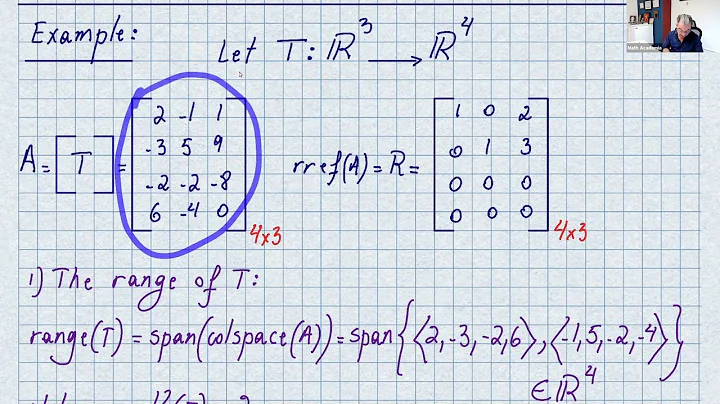 Example: Let T: ℝ³ ⟶ ℝ⁴
A = [T] = [2 -1 1; -3 5 9; -2 -2 -8; 6 -4 0] 4x3 rref(A) = R = [1 0 2; 0 1 3; 0 0 0; 0 0 0] 4x3
1) The range of T:
range(T) = span(colspace(A)) = span{⟨2, -3, -2, 6⟩, ⟨-1, 5, -2, -4⟩}
∈ ℝ⁴